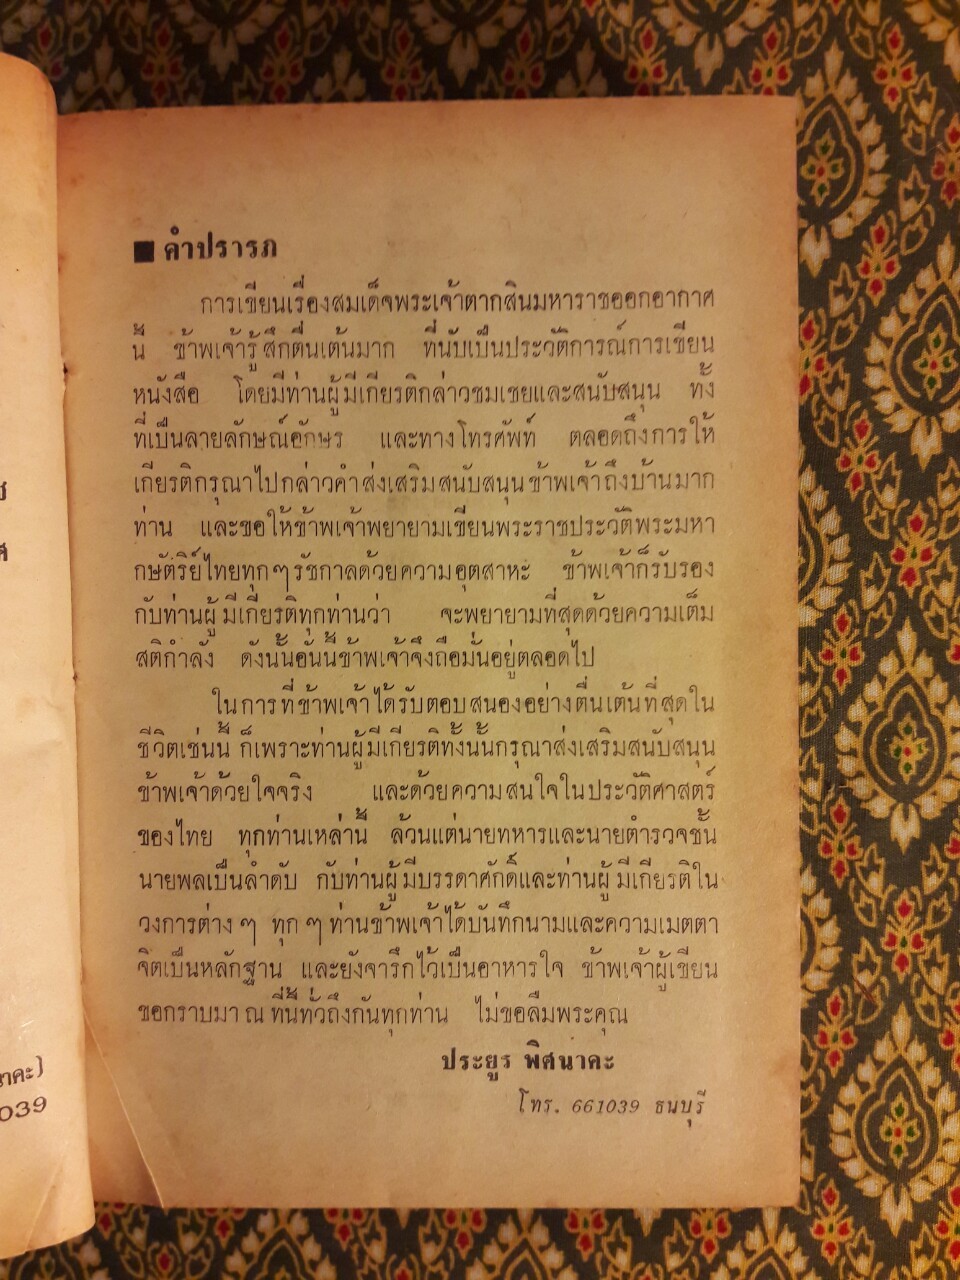 ■ คำปรารภ
การเขียนเรื่องสมเด็จพระเจ้าตากสินมหาราชออกอากาศ
นี้ ข้าพเจ้ารู้สึกตื่นเต้นมาก ที่นับเป็นประวัติการณ์การเขียน
หนังสือ โดยมีท่านผู้มีเกียรติกล่าวชมเชยและสนับสนุน ทั้ง
ที่เป็นลายลักษณ์อักษร และทางโทรศัพท์ ตลอดถึงการให้
เกียรติกรุณาไปกล่าวคำส่งเสริมสนับสนุนข้าพเจ้าถึงบ้านมาก
ท่าน และขอให้ข้าพเจ้าพยายามเขียนพระราชประวัติพระมหา
กษัตริย์ไทยทุกๆรัชกาลด้วยความอุตสาหะ ข้าพเจ้าก็รับรอง
กับท่านผู้มีเกียรติทุกท่านว่า จะพยายามที่สุดด้วยความเต็ม
สติกำลัง ดังนั้นอันนี้ข้าพเจ้าจึงถือมั่นอยู่ตลอดไป
ในการที่ข้าพเจ้าได้รับตอบสนองอย่างตื่นเต้นที่สุดใน
ชีวิตเช่นนี้ ก็เพราะท่านผู้มีเกียรติทั้งนั้นกรุณาส่งเสริมสนับสนุน
ข้าพเจ้าด้วยใจจริง และด้วยความสนใจในประวัติศาสตร์
ของไทย ทุกท่านเหล่านี้ ล้วนแต่นายทหารและนายตำรวจชั้น
นายพลเป็นลำดับ กับท่านผู้มีบรรดาศักดิ์และท่านผู้มีเกียรติใน
วงการต่างๆ ทุกๆท่านข้าพเจ้าได้บันทึกนามและความเมตตา
จิตเป็นหลักฐาน และยังจารึกไว้เป็นอาหารใจ ข้าพเจ้าผู้เขียน
ขอกราบมา ณ ที่นี้ทั่วถึงกันทุกท่าน ไม่ขอลืมพระคุณ
ประยูร พิศนาคะ
โทร. 661039 ธนบุรี
าคะ)
039